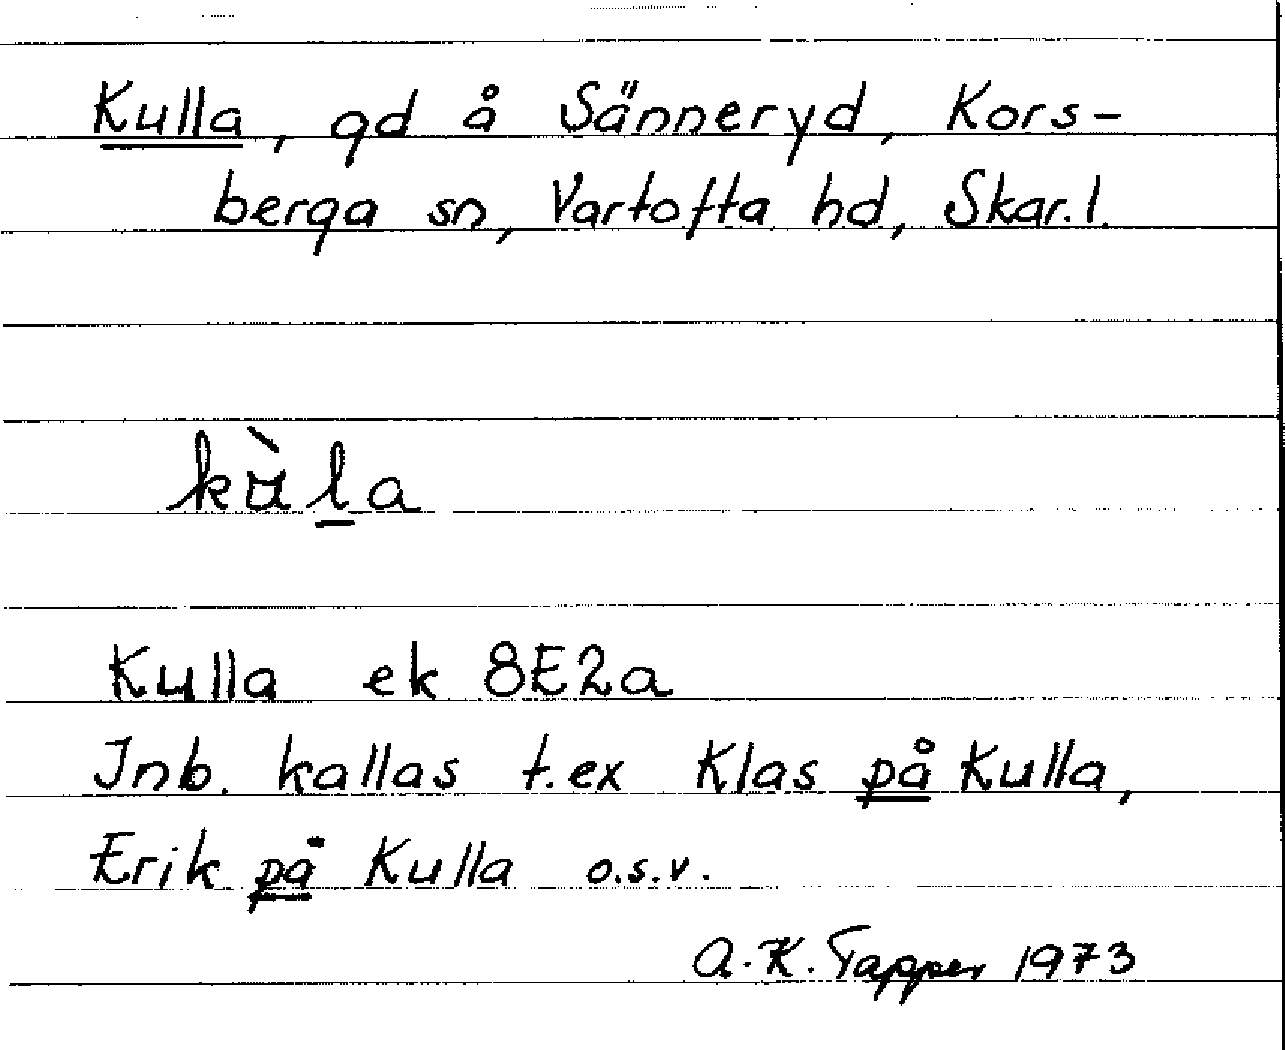 Kulla, gd å Sänneryd, Kors-
berga sn, Vartofta hd, Skar. l.
kùla
Kulla ek 8E2a
Inb. kallas t.ex Klas på Kulla,
Erik på Kulla o.s.v.
A.-K. Tapper 1973